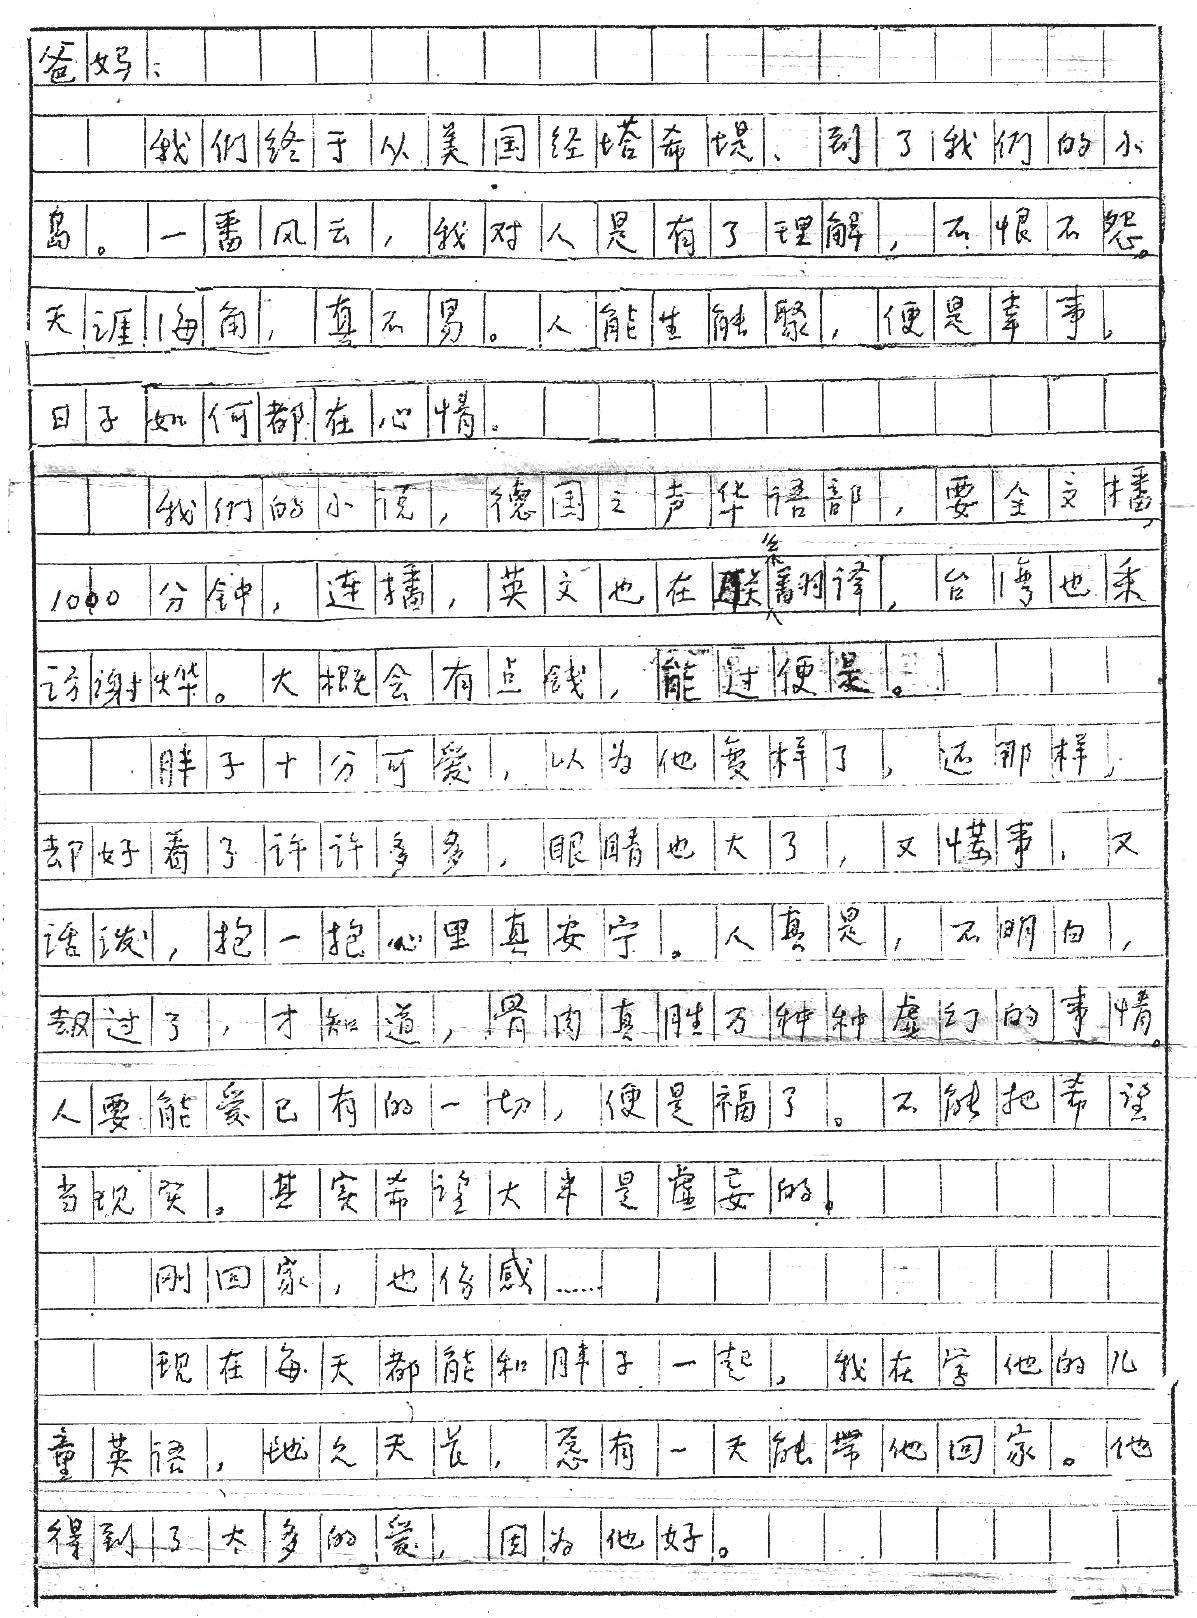 爸妈：
我们终于从美国经塔希堤、到了我们的小
岛。一番风云，我对人是有了理解，不恨不怨。
天涯海角，真不易。人能生能聚，便是幸事。
日子如何都在心情。
我们的小说，德国之声华语部，要全文播，
1000分钟，连播，英文也在联系翻译，台湾也采
访谢烨。大概会有点钱，能过便是。
胖子十分可爱，以为他变样了，还那样，
却好看了许许多多，眼睛也大了，又懂事，又
活泼，抱一抱心里真安宁。人真是，不明白，
飘过了，才知道，骨肉真胜万种种虚幻的事情。
人要能爱已有的一切，便是福了。不能把希望
当现实。其实希望大半是虚妄的。
刚回家，也伤感……
现在每天都能和胖子一起，我在学他的儿
童英语，地久天长，愿有一天能带他回家。他
得到了太多的爱，因为他好。